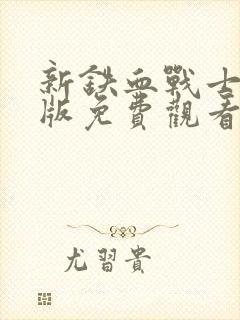 新鉄血戰士
版免費觀看
尤習貴